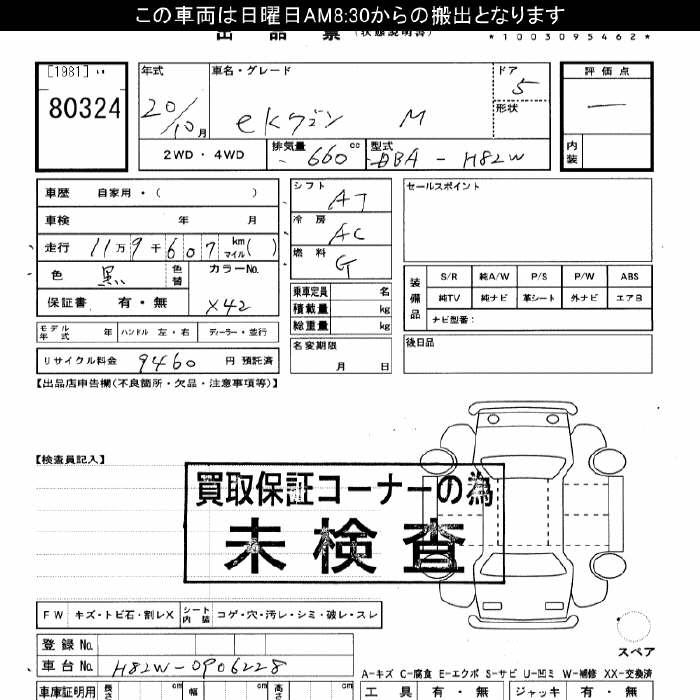 この車両は日曜日AM8:30からの搬出となります
出品票 (状態説明書)
*1003095462*
[1981]
80324
年式
20/10月
車名・グレード
ekワゴン M
ドア
5
形状
評価点
―
内装
2WD・4WD
排気量
660cc
型式
DBA - H82W
車歴 自家用・( )
車検 年 月
走行 11万9千607 km マイル( )
色 黒 色替
カラーNo.
X42
保証書 有・無
モデル年式 年 ハンドル 左・右 ディーラー・並行
リサイクル料金 9460 円 預託済
シフト
AT
冷房
AC
燃料
G
乗車定員 名
積載量 kg
総重量 kg
名変期限
月 日
セールスポイント
装備品
S/R 純A/W P/S P/W ABS
純TV 純ナビ 革シート 外ナビ エアB
ナビ型番:
後日品
【出品店申告欄(不良箇所・欠品・注意事項等)】
【検査員記入】
買取保証コーナーの為
未検査
FW キズ・トビ石・割レX シート内装 コゲ・穴・汚レ・シミ・破レ・スレ
登録No.
車台No. H82W-0906228
スペア
A-キズ C-腐食 E-エクボ S-サビ U-凹ミ W-補修 XX-交換済
車庫証明用 長さ cm 幅 cm 高さ cm
工具 有・無 ジャッキ 有・無